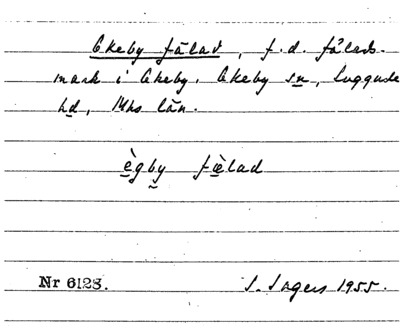 Ekeby fälad, f.d. fälads-
mark i Ekeby. Ekeby sn, Luggude
hd, Mhs län.
ègby fælad
Nr 6128. I. Ingers 1955.